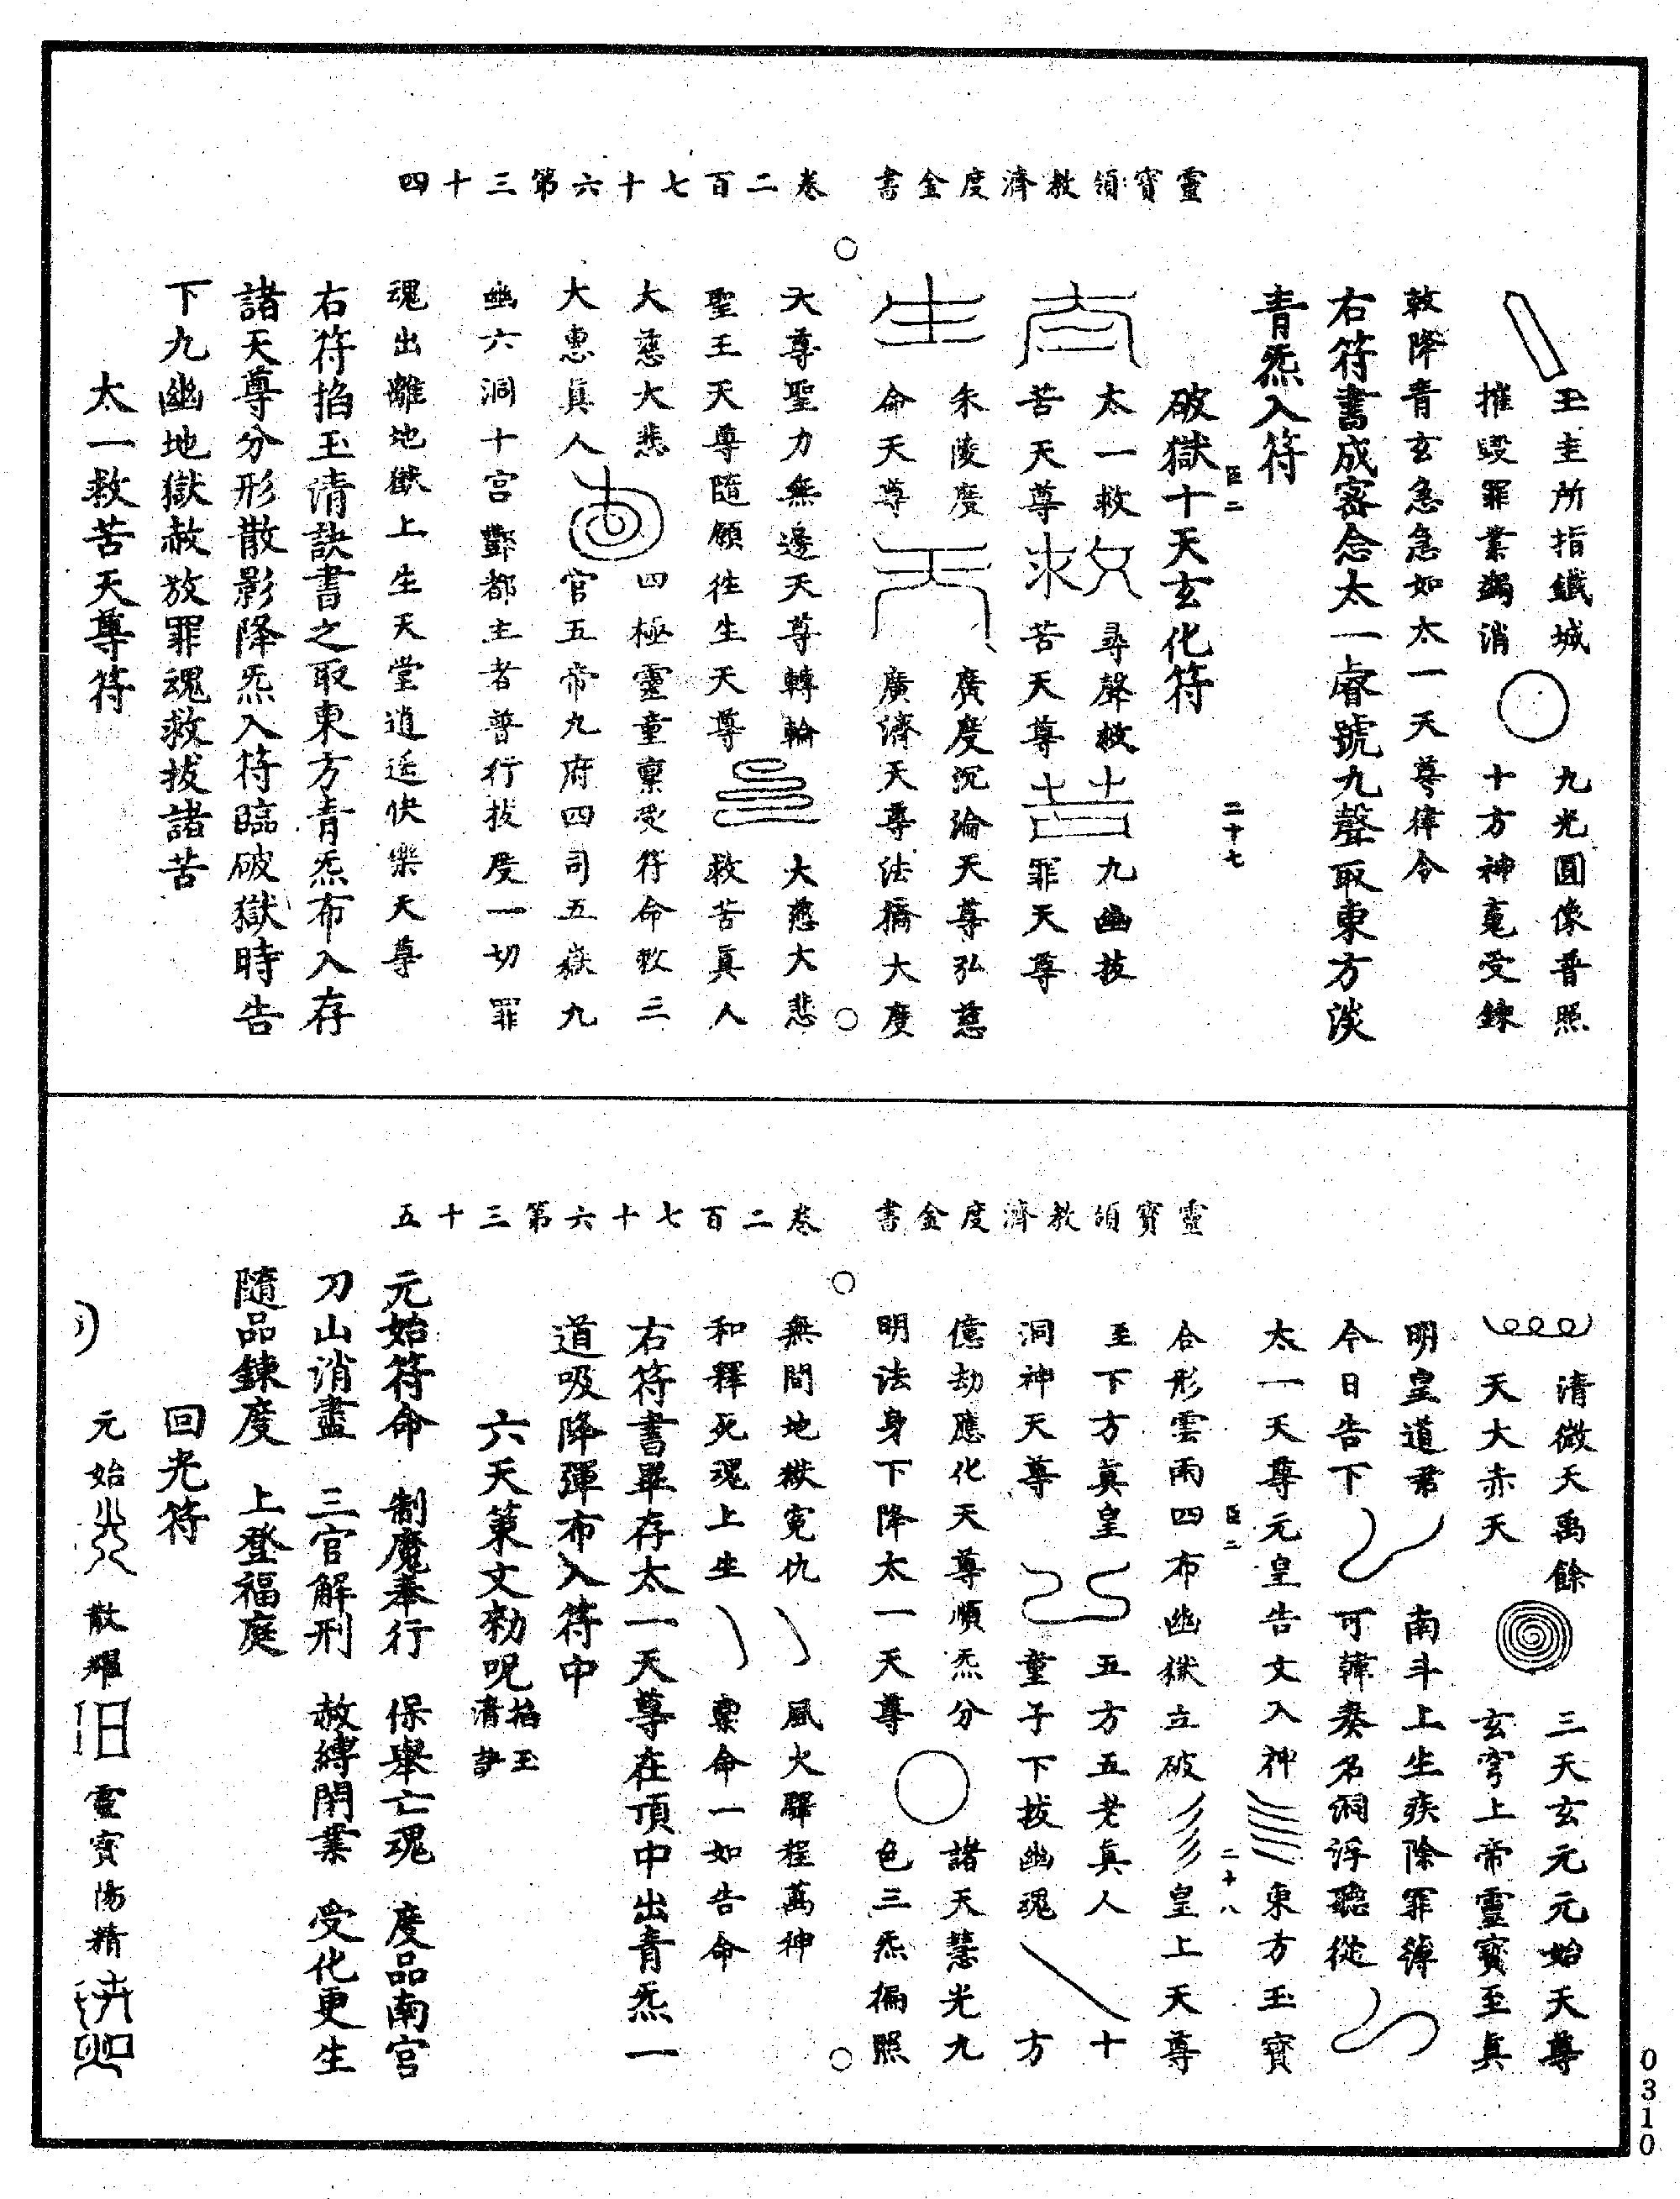 靈寶領教濟度金書　卷二百七十六第三十四
玉圭所指鐵城　九光圓像普照
摧毀罪業蠲消　十方神鬼受鍊
敕降青玄急急如太一天尊律令
右符書成密念太一睿號九聲取東方淡
青炁入符
破獄十天玄化符
臣二　二十七
太一救　尋聲救　九幽拔
苦天尊　苦天尊　罪天尊
朱陵度　廣度沉淪天尊弘慈
命天尊　廣濟天尊法橋大度
天尊聖力無邊天尊轉輪　大慈大悲
聖王天尊隨願往生天尊　救苦真人
大慈大悲　四極靈童稟受符命敕三
大惠真人　官五帝九府四司五嶽九
幽六洞十宮酆都主者普行拔度一切罪
魂出離地獄上生天堂逍遙快樂天尊
右符掐玉清訣書之取東方青炁布入存
諸天尊分形散影降炁入符臨破獄時告
下九幽地獄赦放罪魂救拔諸苦
太一救苦天尊符
靈寶領教濟度金書　卷二百七十六第三十五
清微天禹餘　三天玄元元始天尊
天大赤天　玄穹上帝靈寶至真
明皇道君　南斗上生疾除罪簿
今日告下　可韓奏名洞浮聽從
太一天尊元皇告文入神　東方玉寶
臣二　二十八
合形雲雨四布幽獄立破　皇上天尊
至下方真皇　五方五老真人　十
洞神天尊　童子下拔幽魂　方
億劫應化天尊順炁分　諸天慧光九
明法身下降太一天尊　色三炁徧照
無間地獄寃仇　風火驛程萬神
和釋死魂上生　稟命一如告命
右符書畢存太一天尊在頂中出青炁一
道吸降彈布入符中
六天策文勑呪掐玉清訣
元始符命　制魔奉行　保舉亡魂　度品南宮
刀山消盡　三官解刑　赦縛閉業　受化更生
隨品鍊度　上登福庭
回光符
元始　散耀　靈寶陽精
0310